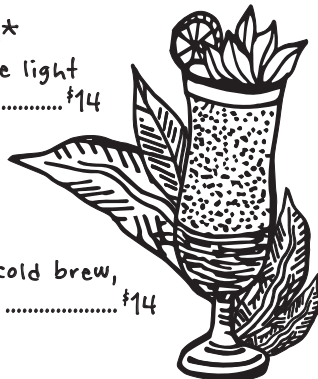 *
e light
............$14
cold brew,
....................$14